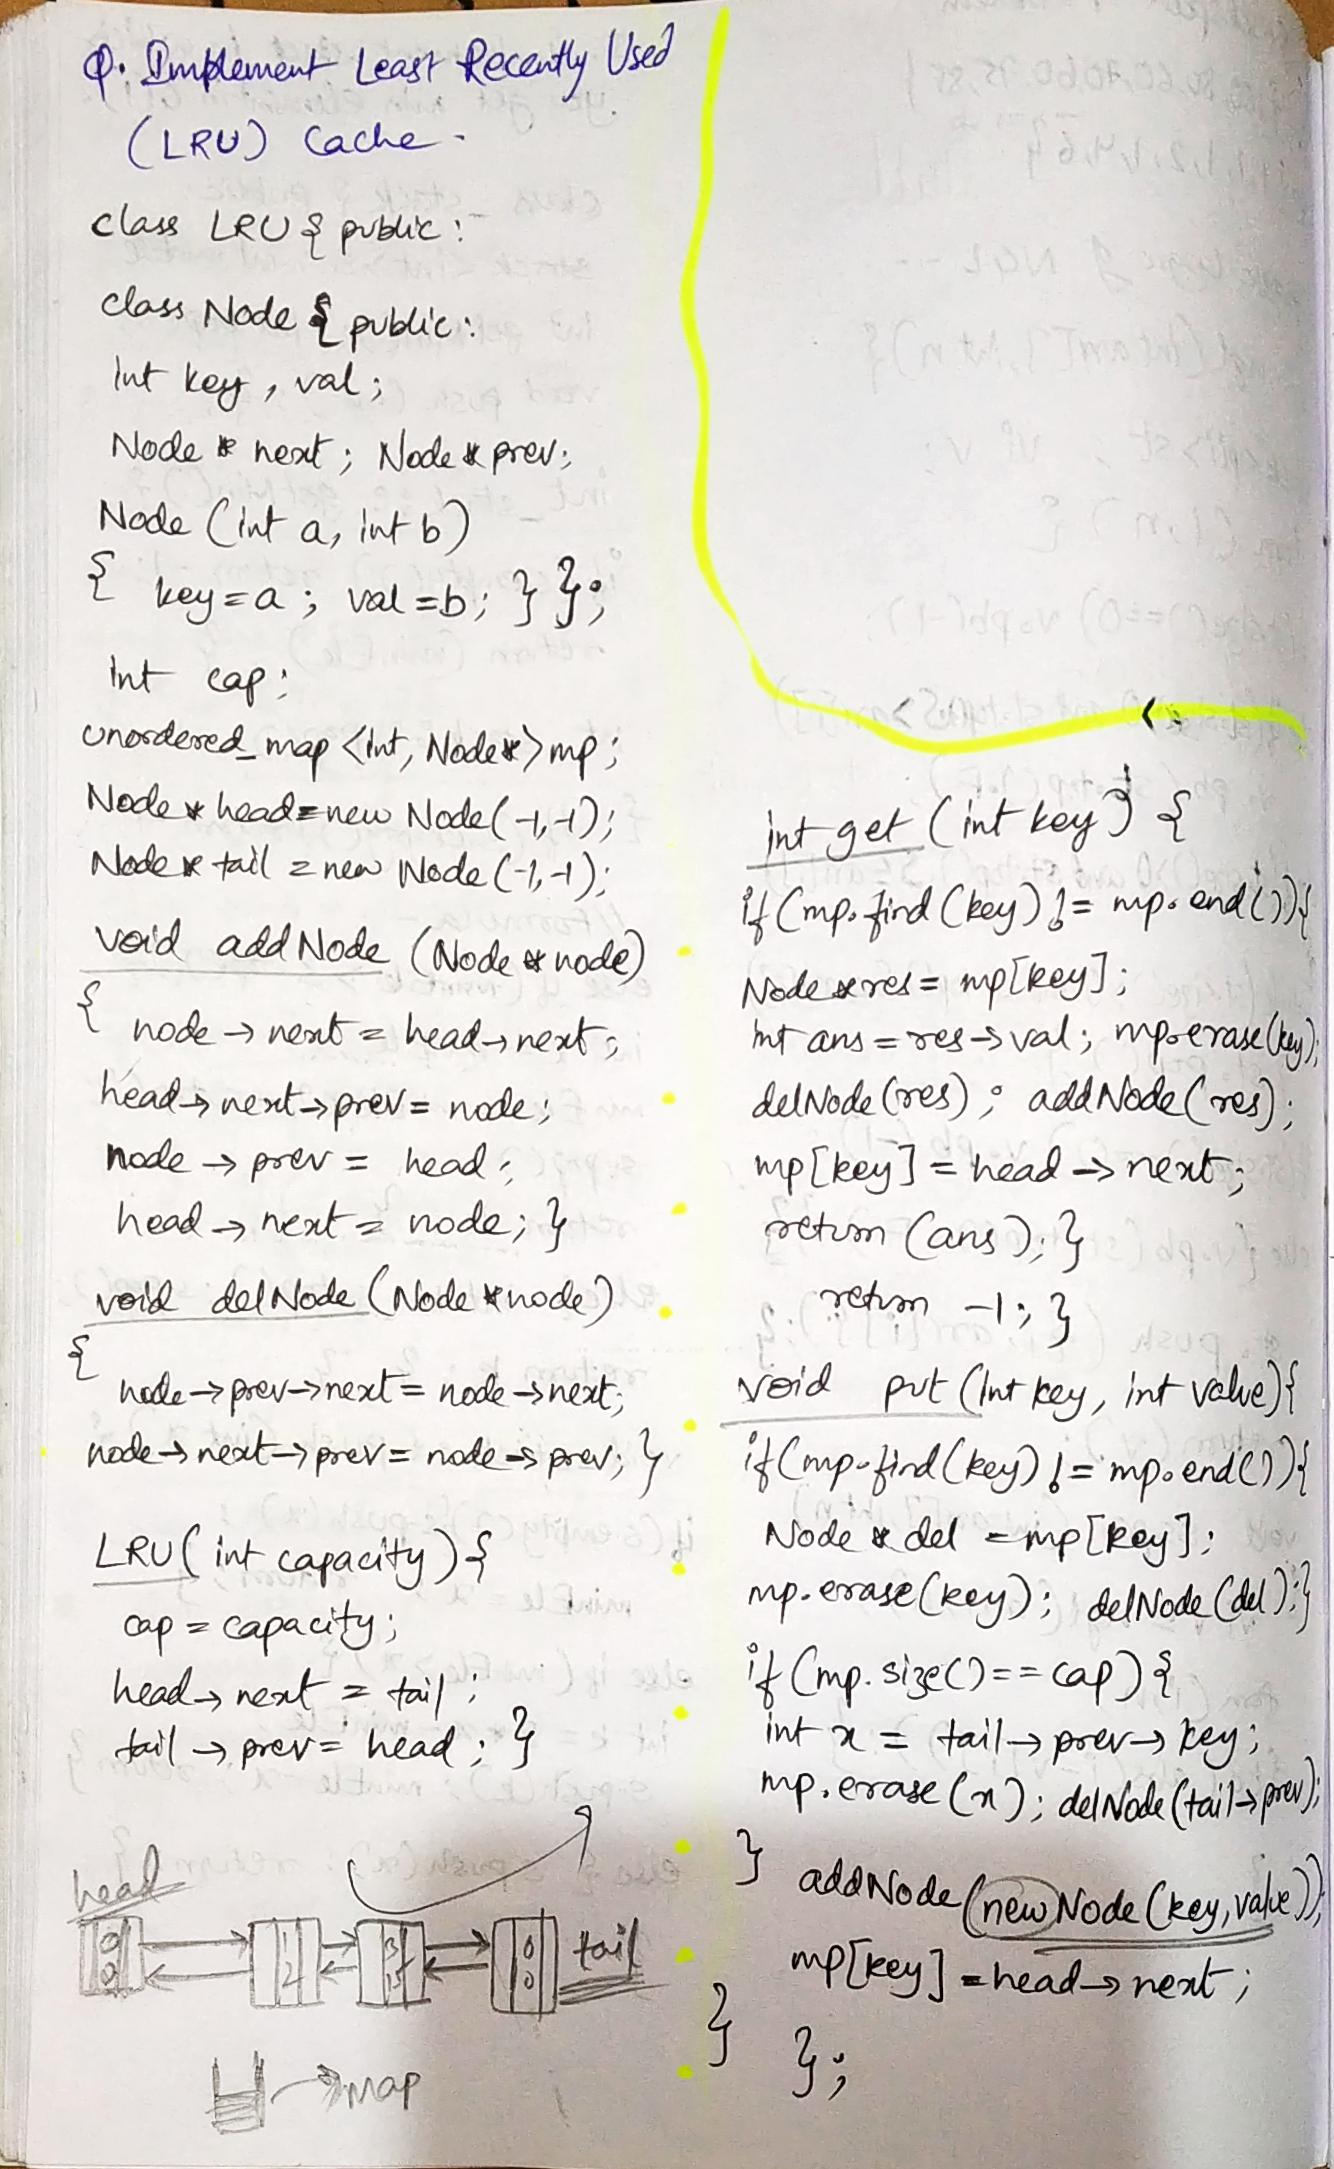 Q. Implement Least Recently Used
(LRU) Cache -
class LRU { public:
class Node { public:
int key, val;
Node * next; Node * prev;
Node (int a, int b)
{ key = a; val = b; } };
int cap;
unordered_map <int, Node*> mp;
Node * head = new Node(-1,-1);
Node * tail = new Node(-1,-1);
void addNode (Node * node)
{
node → next = head → next;
head → next → prev = node;
node → prev = head;
head → next = node; }
void delNode (Node * node)
{
node → prev → next = node → next;
node → next → prev = node → prev; }
LRU( int capacity ) {
cap = capacity;
head → next = tail;
tail → prev = head; }
head
tail
map
int get (int key) {
if (mp.find(key) != mp.end()) {
Node * res = mp[key];
int ans = res → val; mp.erase(key);
delNode(res); addNode(res);
mp[key] = head → next;
return (ans); }
return -1; }
void put (int key, int value) {
if (mp.find(key) != mp.end()) {
Node * del = mp[key];
mp.erase(key); delNode(del); }
if (mp.size() == cap) {
int x = tail → prev → key;
mp.erase(x); delNode(tail → prev);
} addNode(new Node(key, value));
mp[key] = head → next;
} };